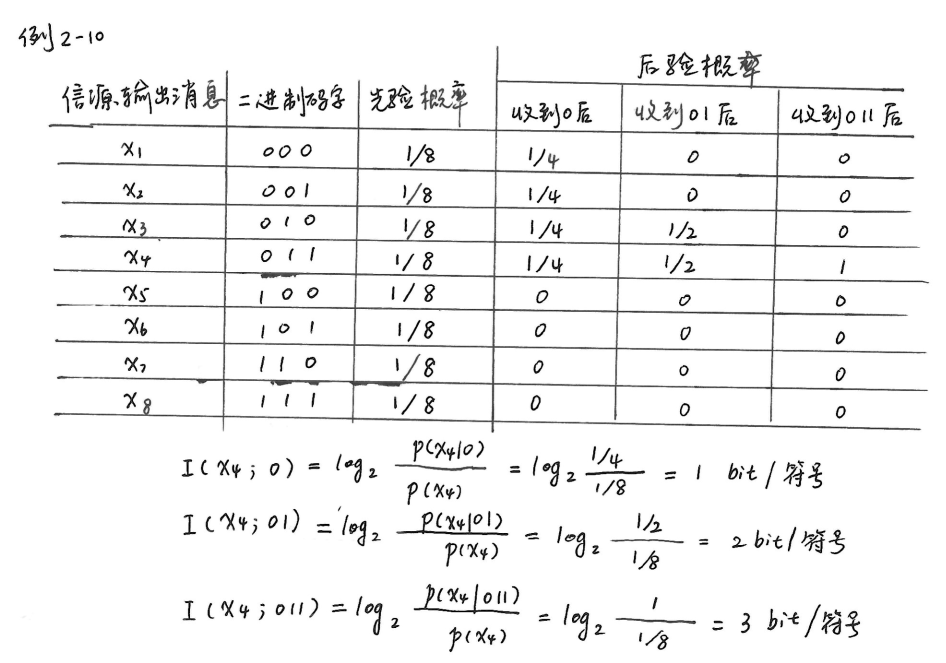 例2-10
后验概率
信源输出消息 二进制码字 先验概率 收到0后 收到01后 收到011后
x₁ 000 1/8 1/4 0 0
x₂ 001 1/8 1/4 0 0
x₃ 010 1/8 1/4 1/2 0
x₄ 011 1/8 1/4 1/2 1
x₅ 100 1/8 0 0 0
x₆ 101 1/8 0 0 0
x₇ 110 1/8 0 0 0
x₈ 111 1/8 0 0 0
I(x₄; 0) = log₂ p(x₄|0)/p(x₄) = log₂ (1/4)/(1/8) = 1 bit/符号
I(x₄; 01) = log₂ p(x₄|01)/p(x₄) = log₂ (1/2)/(1/8) = 2 bit/符号
I(x₄; 011) = log₂ p(x₄|011)/p(x₄) = log₂ 1/(1/8) = 3 bit/符号